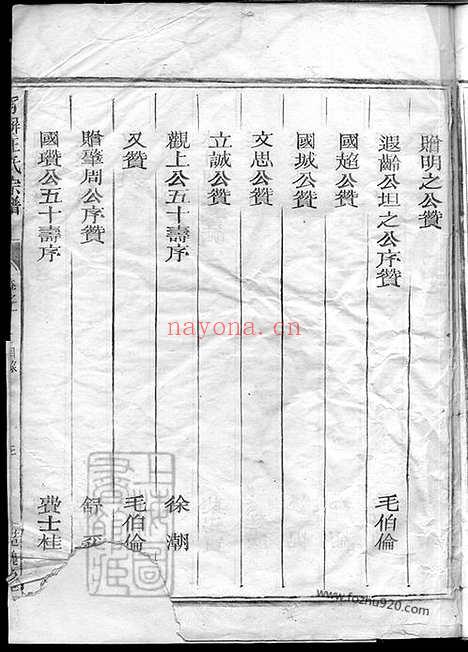 贈明之公贊
遐齡公坦之公序贊 毛伯倫
國趨公贊
國城公贊
文思公贊
立誠公贊
觀上公五十壽序 徐潮
又贊 毛伯倫
贈肇周公序贊
國瓚公五十壽序 費士桂
汪氏宗譜
卷之一
目錄
nayona.cn
www.fozhu920.com